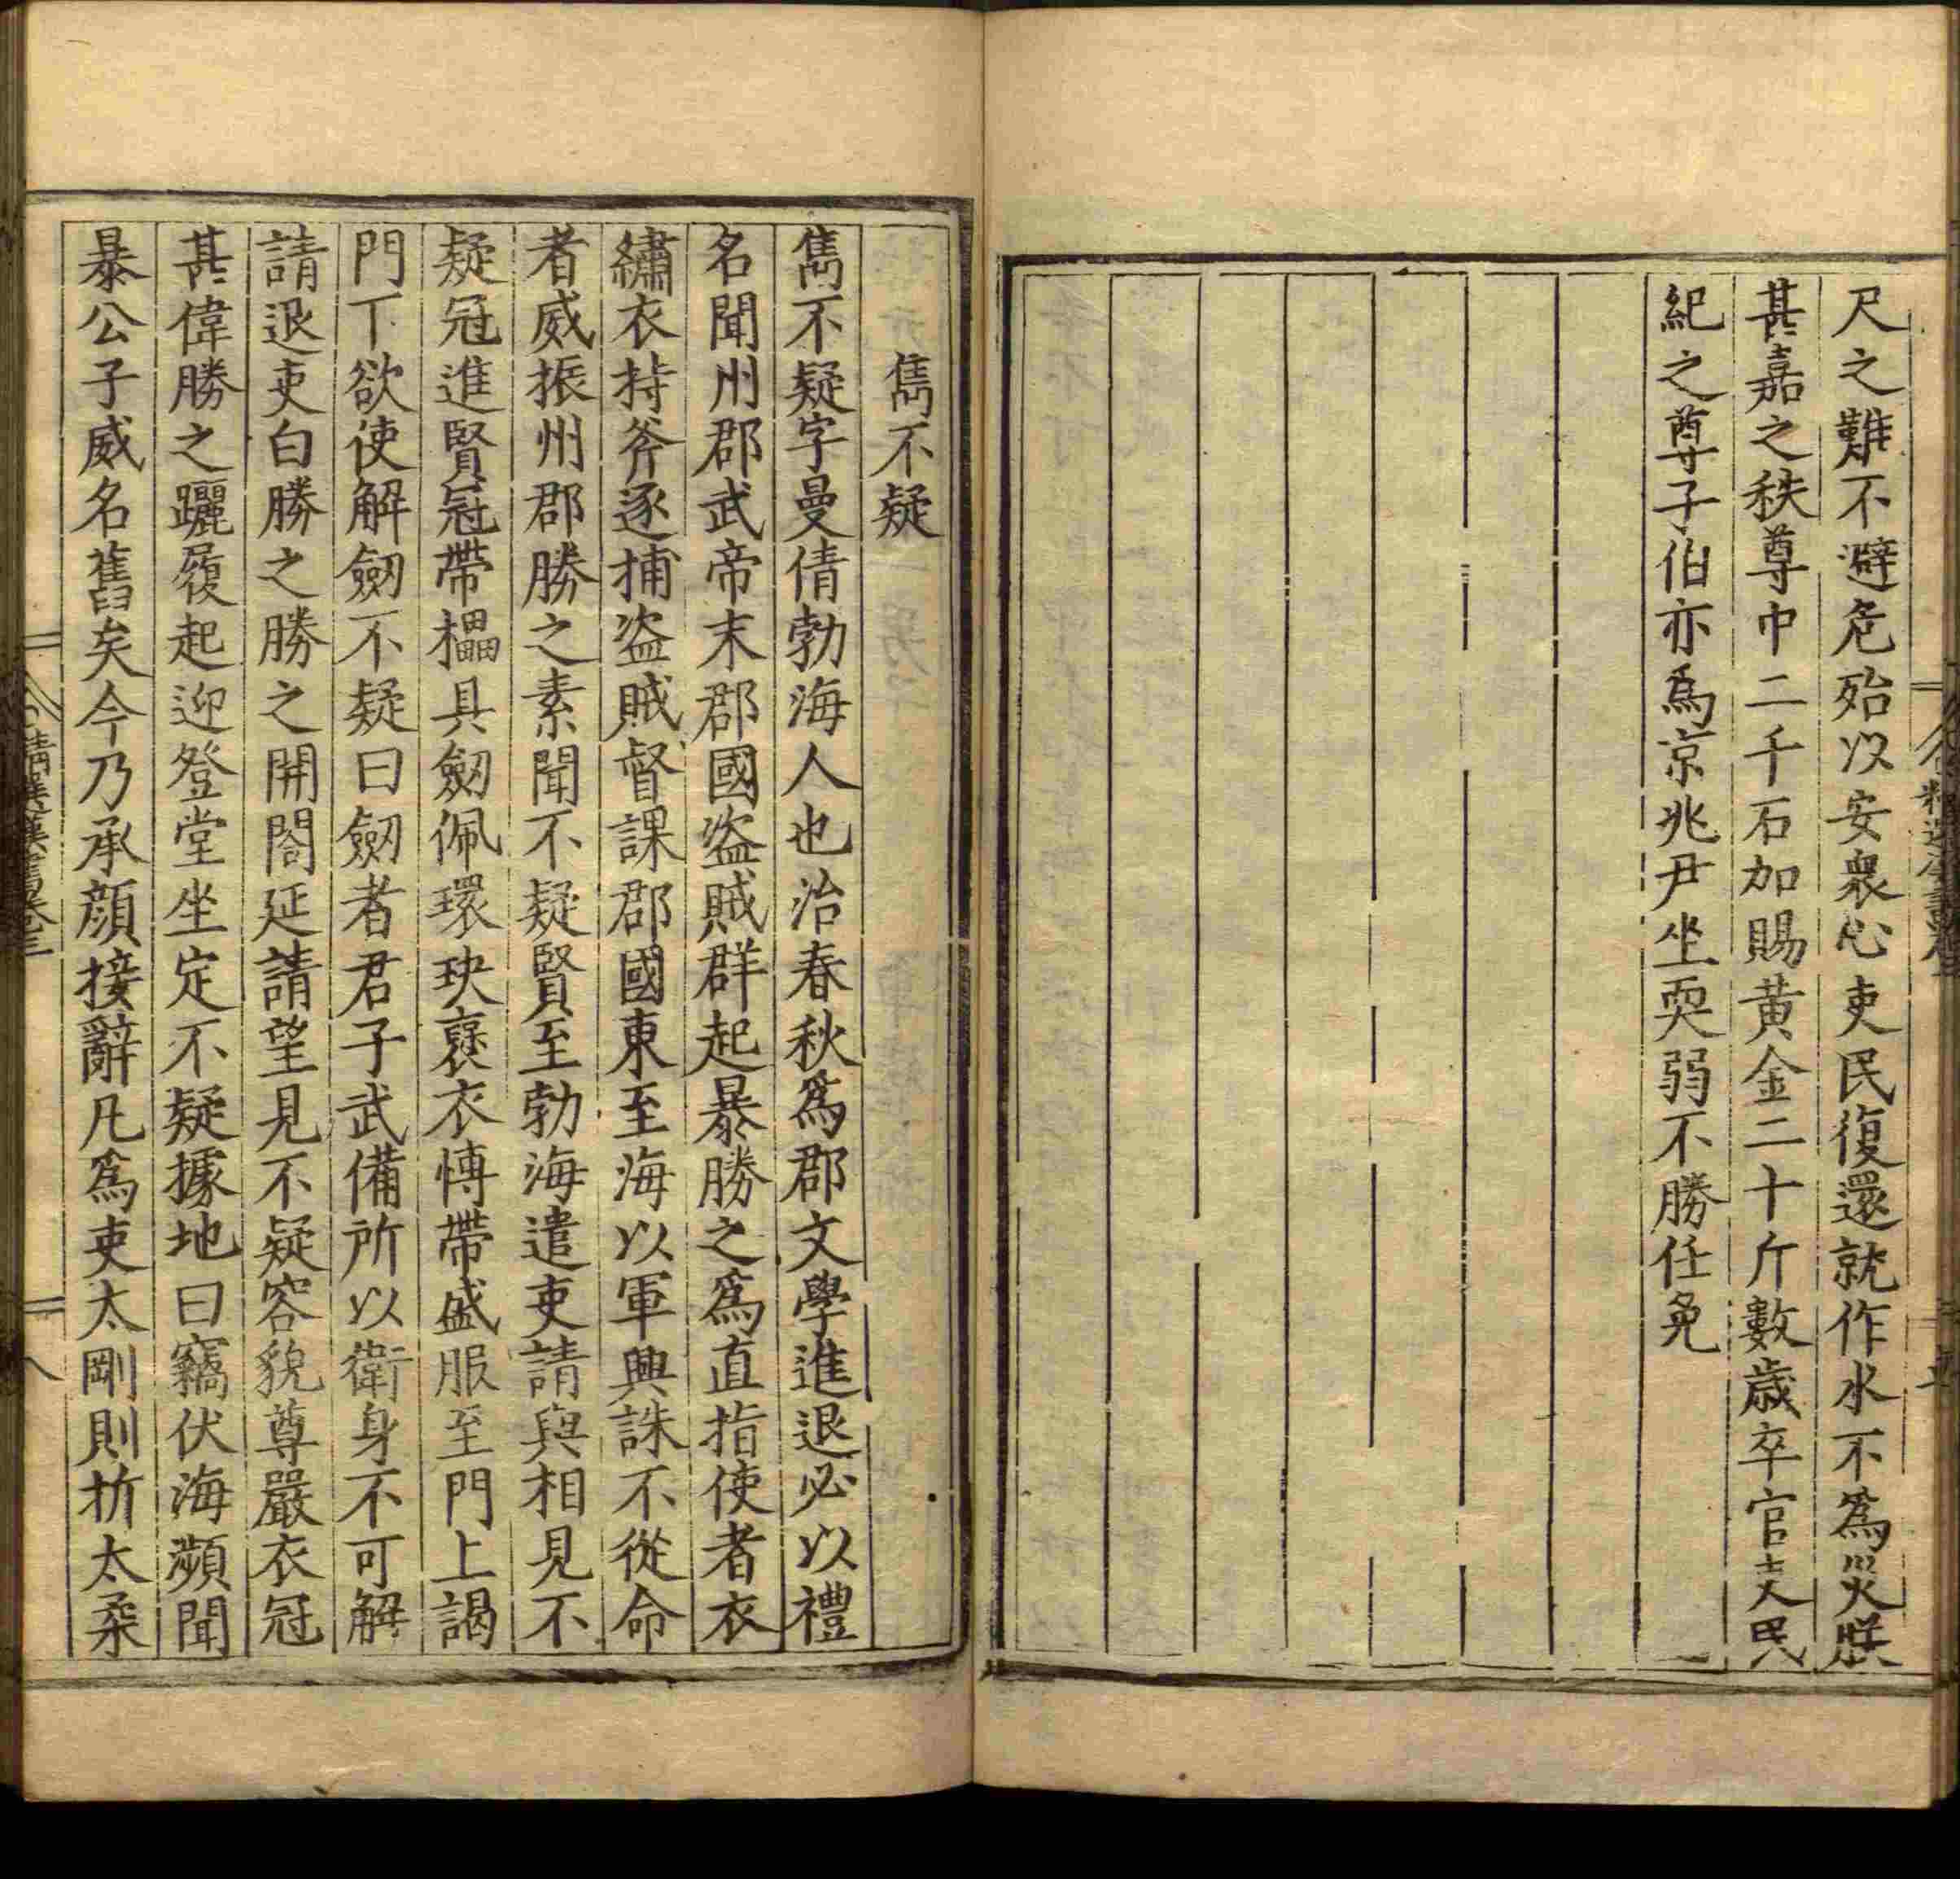 尺之難不避危殆以安衆心吏民復還就作水不爲災朕
甚嘉之秩尊中二千石加賜黃金二十斤數歲卒官吏民
紀之尊子伯亦爲京兆尹坐耎弱不勝任免
雋不疑
雋不疑字曼倩勃海人也治春秋爲郡文學進退必以禮
名聞州郡武帝末郡國盜賊群起暴勝之爲直指使者衣
繡衣持斧逐捕盜賊督課郡國東至海以軍興誅不從命
者威振州郡勝之素聞不疑賢至勃海遣吏請與相見不
疑冠進賢冠帶櫑具劒佩環玦襃衣慱帶盛服至門上謁
門下欲使解劒不疑曰劒者君子武備所以衛身不可解
請退吏白勝之勝之開閤延請望見不疑容貌尊嚴衣冠
甚偉勝之躧履起迎登堂坐定不疑據地曰竊伏海瀕聞
暴公子威名舊矣今乃承顔接辭凡爲吏太剛則折太柔
精選漢書卷三
八